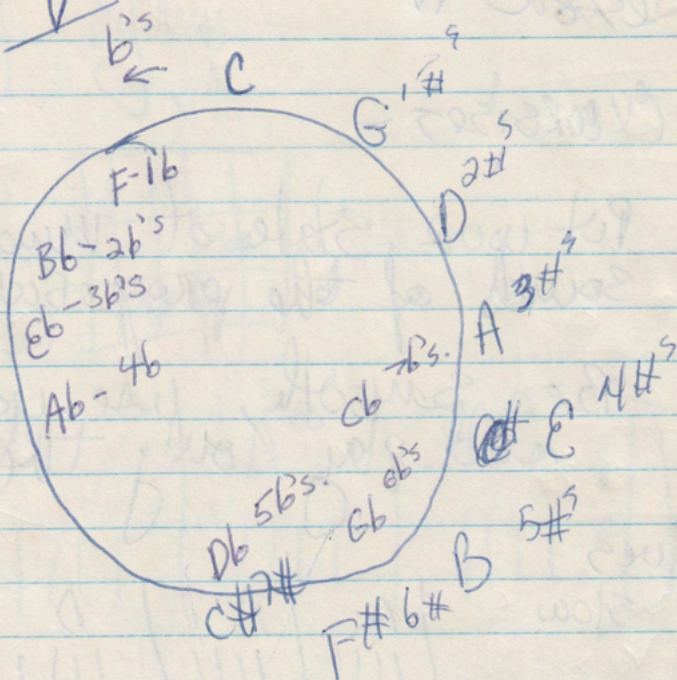 b's
←
C
G 1#'s
D 2#'s
A 3#'s
E 4#'s
B 5#'s
F# 6#
C# 7#
F-1b
Bb-2b's
Eb-3b's
Ab-4b
Db 5b's.
Gb 6b's
Cb 7b's.